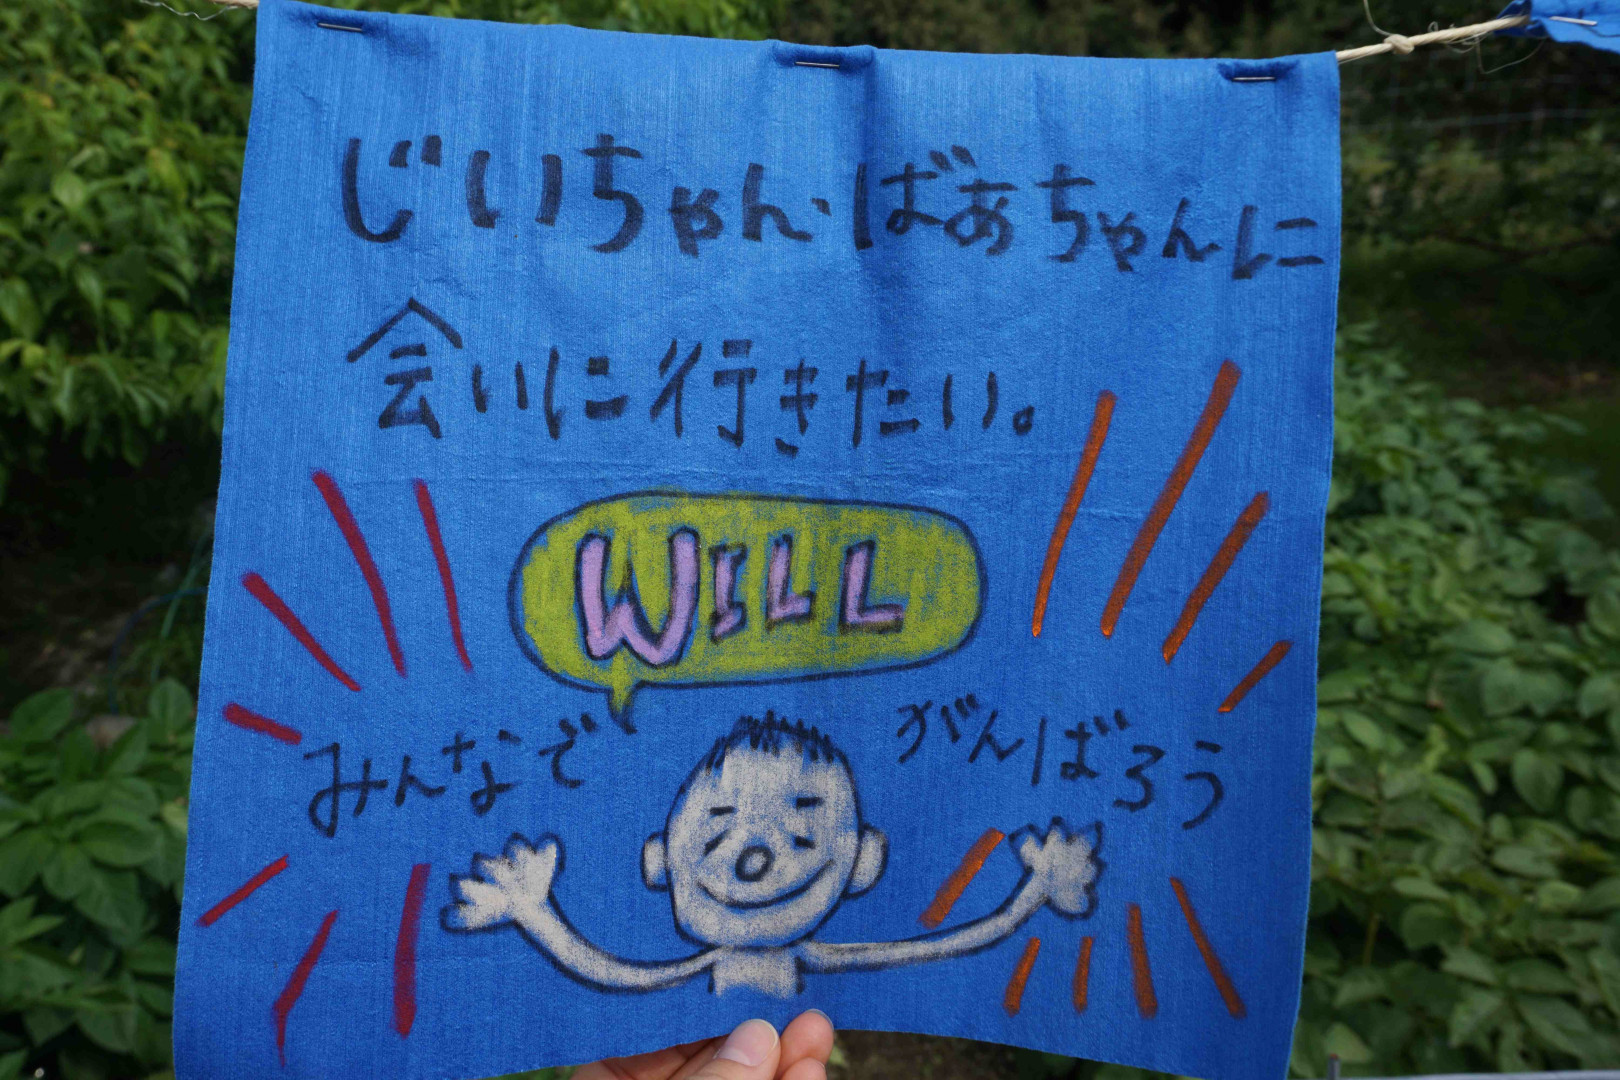 じいちゃん・ばあちゃんに
会いに行きたい。
WILL
みんなで がんばろう